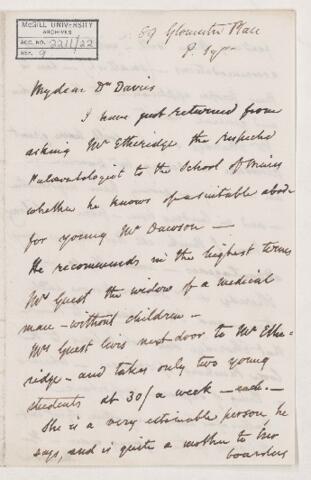 McGILL UNIVERSITY
ARCHIVES
ACC. NO. 2211/22
REF. 9
59 Gloucester Place
P. Sqre
My dear Dr Davis
I have just returned from
asking Mr Etheridge the respected
Palaeontologist to the School of Mines
whether he knows of a suitable abode
for young Mr Dawson —
He recommends in the highest terms
Mrs Guest the widow of a medical
man — without children —
Mrs Guest lives next door to Mr Ethe-
ridge — and takes only two young
students at 30/ a week — each —
She is a very estimable person, he
says, and is quite a mother to two
boarders